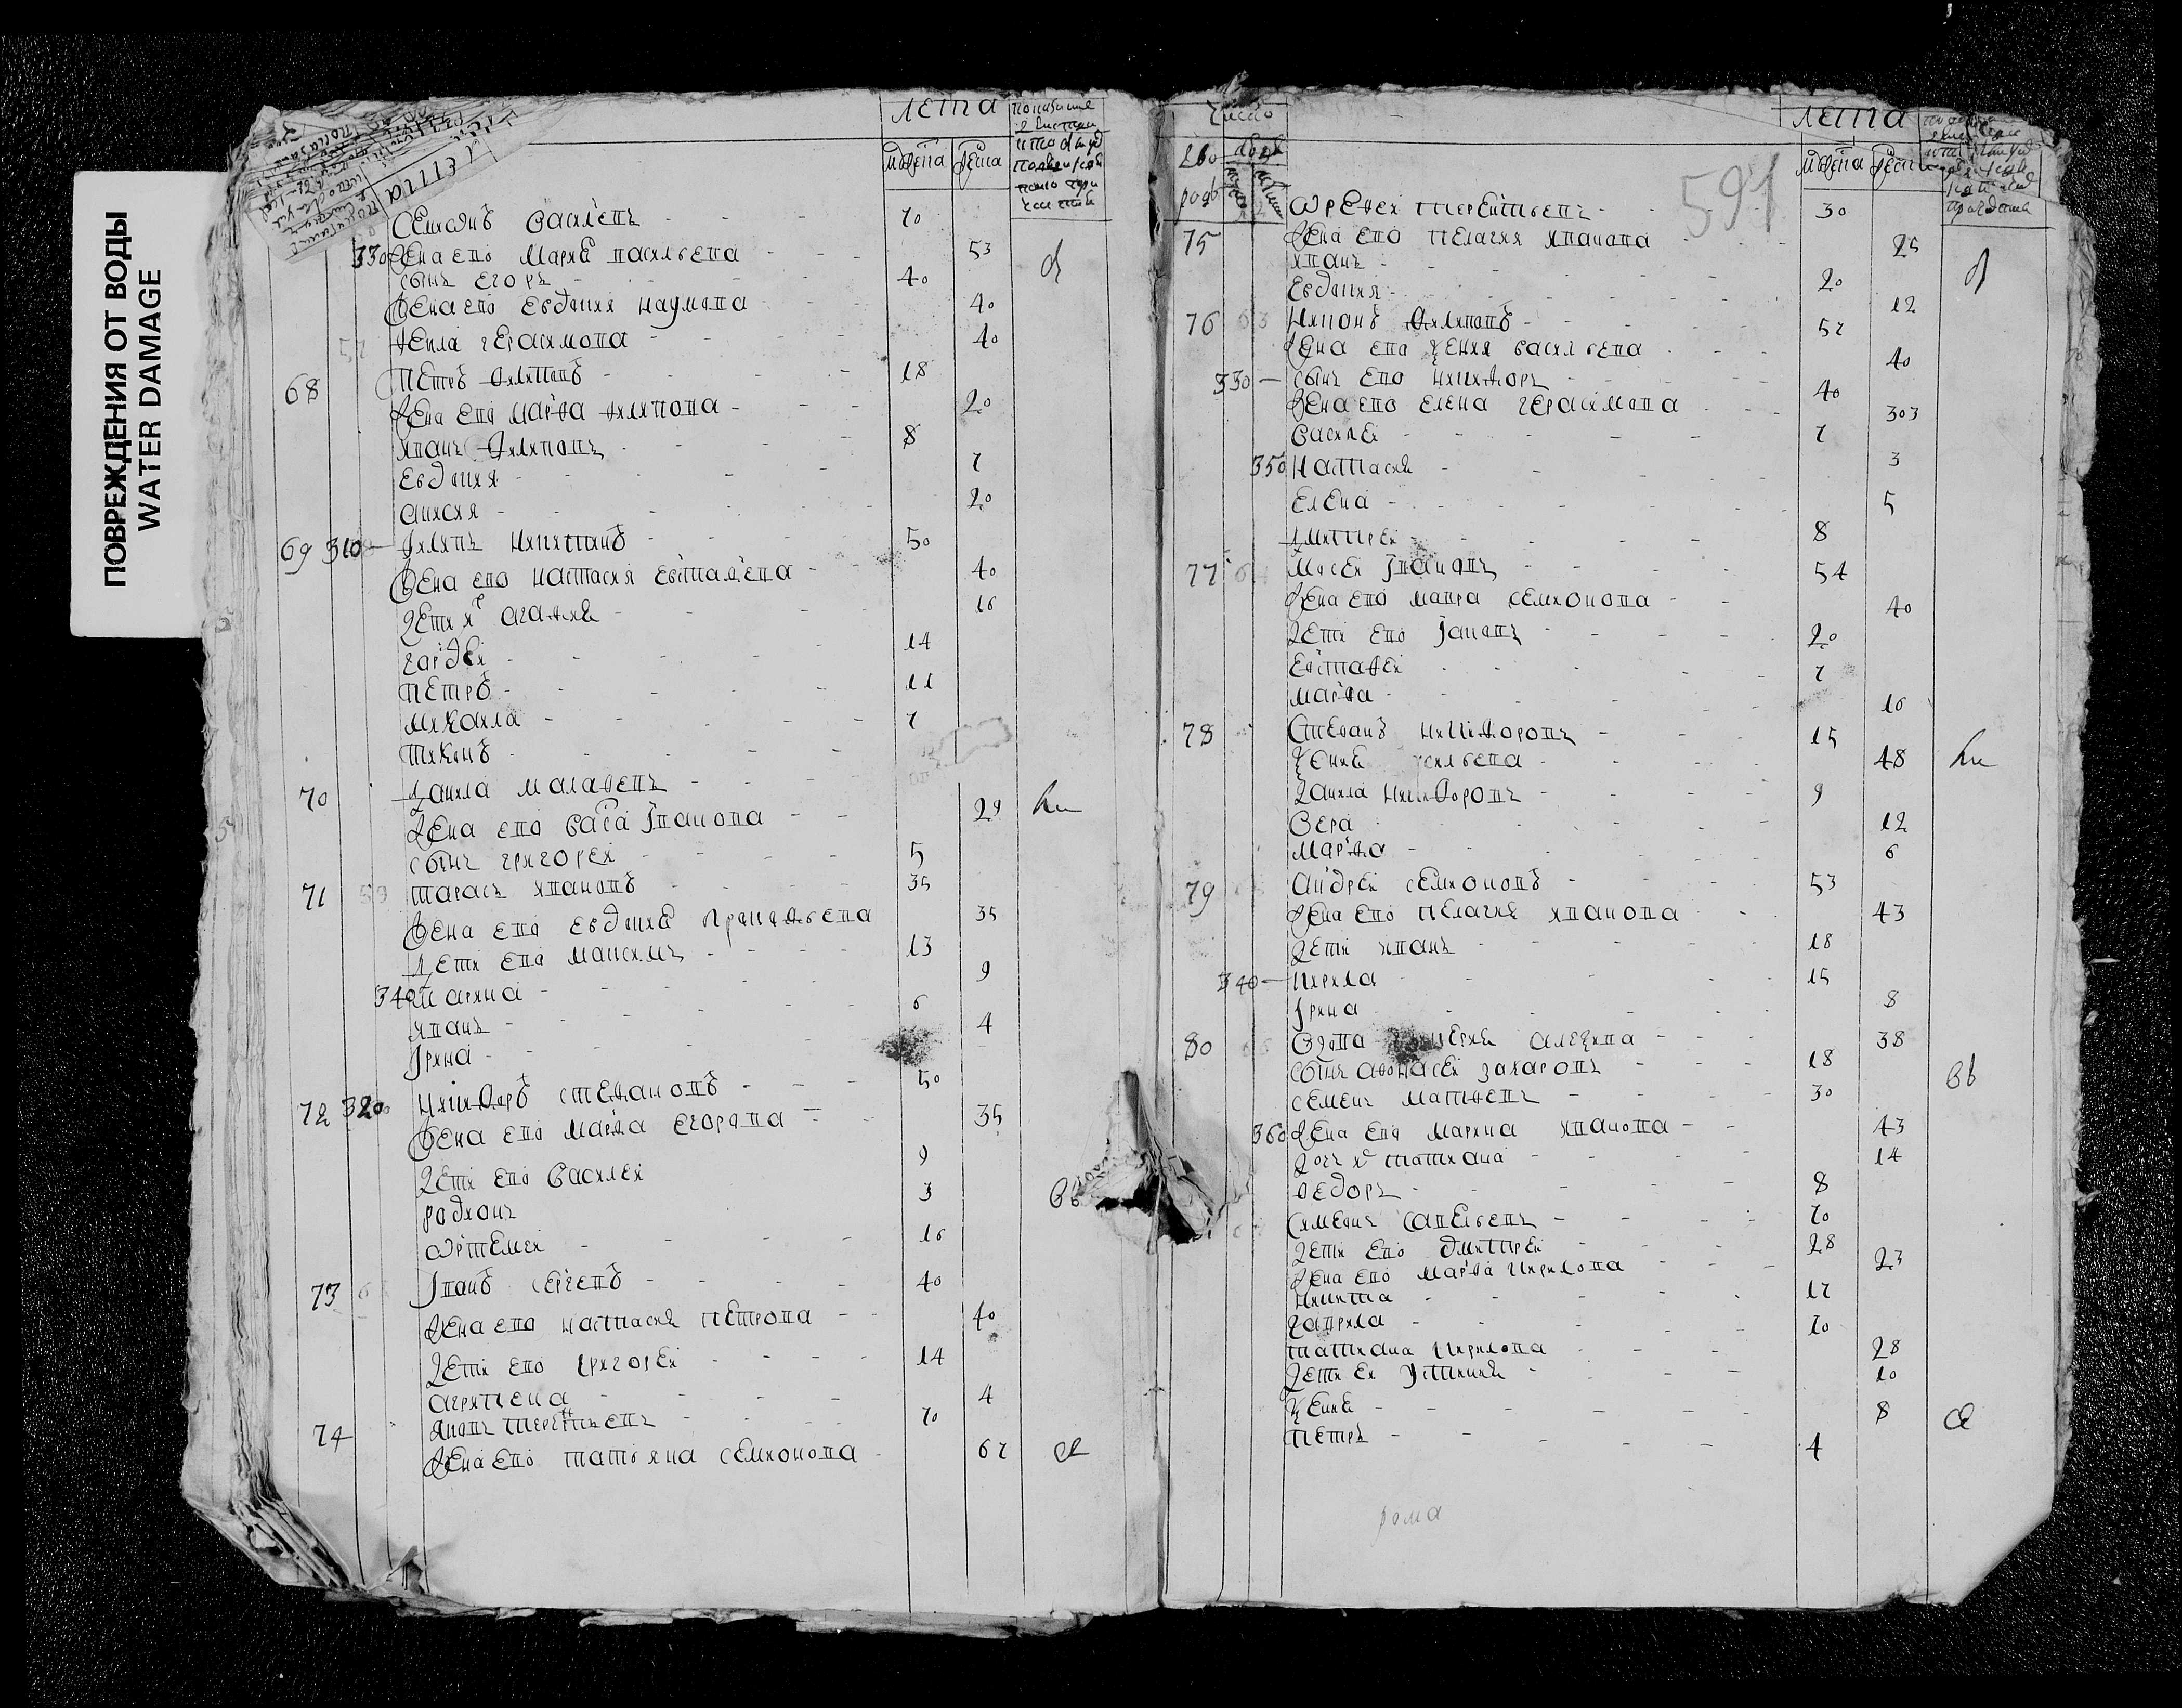 ПОВРЕЖДЕНИЯ ОТ ВОДЫ
WATER DAMAGE
лета
мужеска женска
Семионъ Василевъ - - - 70
330 Жена ево Мариа васильева - - 53
сынъ Егоръ - - 40
Жена ево Евдокия наумова - - 40
Фекла герасимова - - 40
68 Петръ Филиповъ - - 18
Жена ево марфа филипова - - 20
иванъ Филиповъ - - 8
Евдокия - - 7
анися - - 20
69 310 Филипъ Никитинъ - - 50
Жена ево настасия Евстафева - - 40
дети их агафия - - 16
гордей - - 14
Петръ - - 11
михаила - - 7
тихонъ - -
70 данила малафевъ - -
Жена ево васа Iванова - - 29
сынъ григорей - - 5
71 59 тарасъ ивановъ - - 35
Жена ево евдокиа 35
дети ево максимъ - - 13
340 марина - - 9
иванъ - - 6
Iрина - - 4
72 320 Никифоръ стефановъ - - 50
Жена ево марфа егорова - - 35
Дети ево Василей 9
родионъ 3
артемей - - 16
73 Iванъ Сергевъ - - 40
Жена ево настасия петрова - - 40
Дети ево григорей - - 14
агрипена - - 4
74 терентьевъ - - 70
Жена ево татьяна семионова - 67
число
лета
мужеска
591
Арефей терентьевъ - - 30
75 Жена ево пелагия иванова - - 25
иванъ -
Евдокия - - 20
12
76 63 Никонъ Филиповъ - - 57
Жена ево ксения васильева - - 40
330 сынъ ево никифоръ - - 40
Жена ево елена герасимова - - 303
василей - - 7
350 Настася - - 3
елена - - 5
дмитрей - - 8
77 Мосей Iвановъ - - 54
Жена ево мавра семионова - - 40
Дети ево - - 20
Евстафей - - 7
марфа - - 16
78 Стефанъ никифоровъ - - 15
ксениа васильева - - 48
Данила никифоровъ - - 9
Вера - - 12
марфа - - 6
79 андрей семионовъ - - 53
Жена ево пелагия иванова - - 43
Дети иванъ - - 18
340 кирила - - 15
Iрина - - 8
80 вдова алексиева - - 38
сынъ афонасей захаровъ - - 18
семенъ матвевъ - - 30
360 Жена ево марина иванова - - 43
дочь их татиана - - 14
федоръ - - 8
Симеонъ савельевъ - - 70
Дети ево дмитрей - - 28
Жена ево марфа кирилова - - 23
никита - - 17
гаврила - - 10
татиана кирилова - - 28
Дети ея устиния - - 10
ксениа - - 8
петръ - - 4